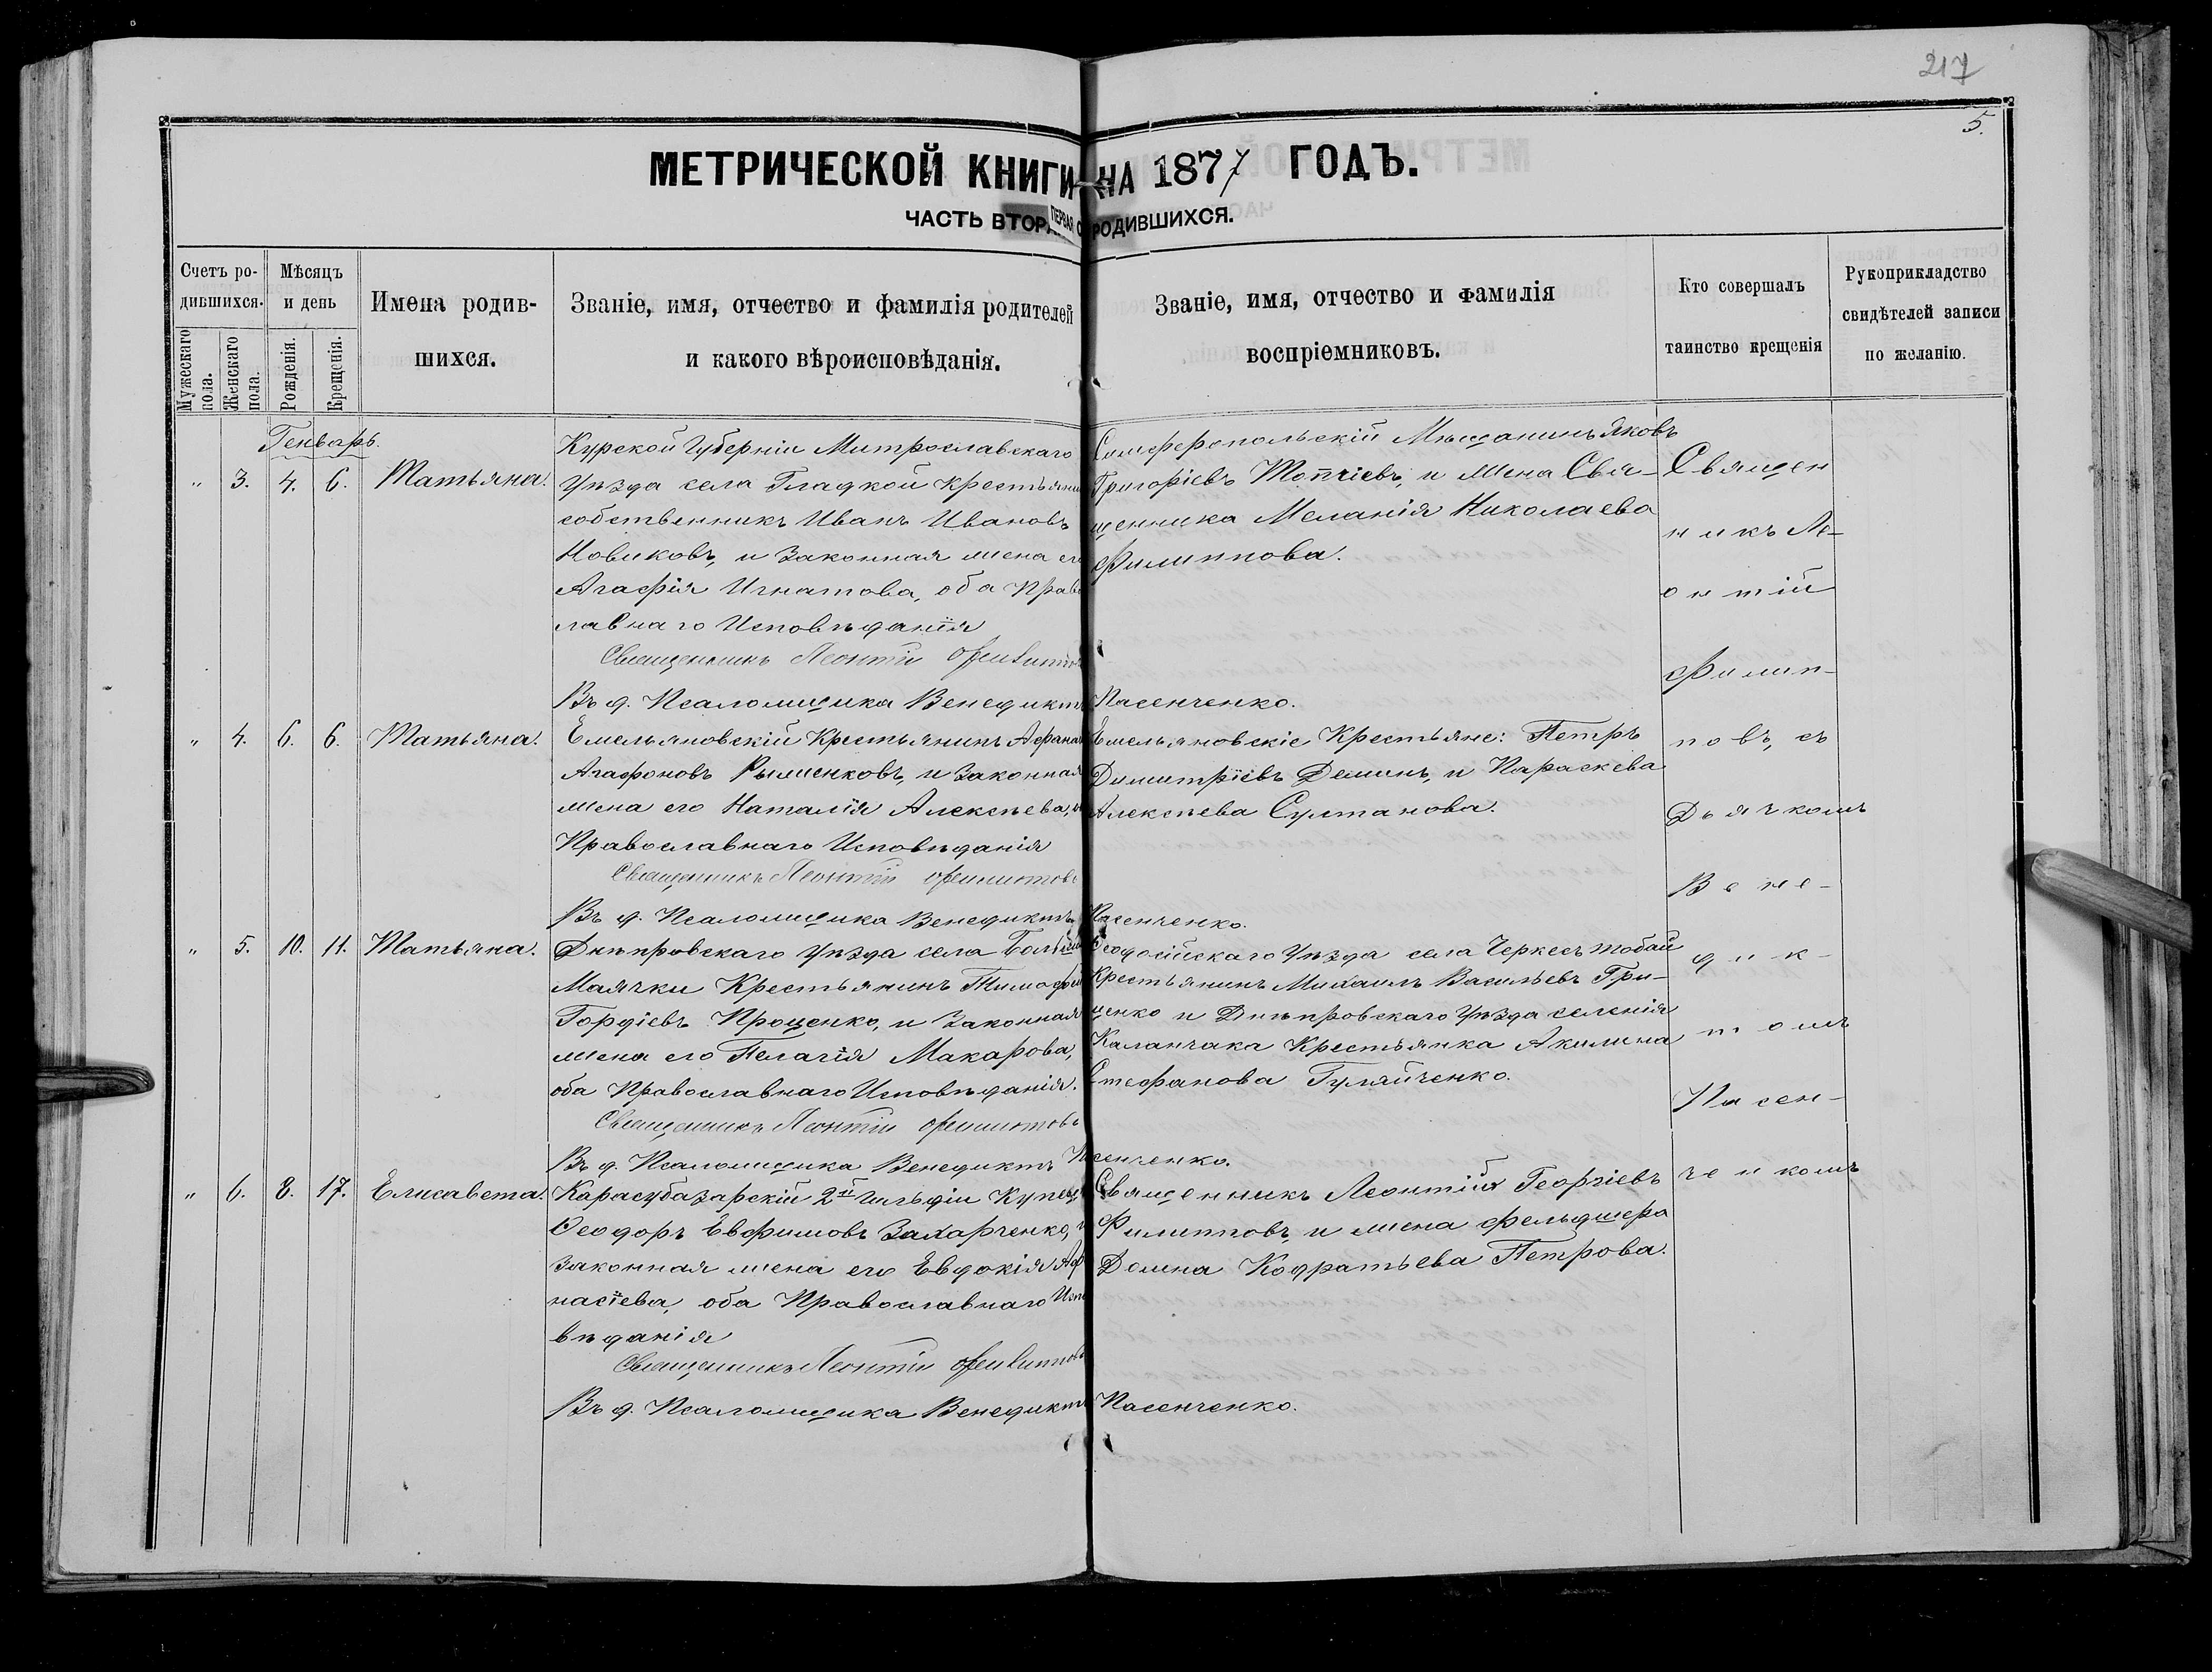 217
5.
МЕТРИЧЕСКОЙ КНИГИ НА 1877 ГОДЪ.
ЧАСТЬ ПЕРВАЯ О РОДИВШИХСЯ.
Счетъ ро-
дившихся.
Мужескаго пола.
Женскаго пола.
Мѣсяцъ
и день
Рожденія.
Крещенія.
Имена родив-
шихся.
Званіе, имя, отчество и фамилія родителей
и какого вѣроисповѣданія.
Званіе, имя, отчество и фамилія
воспріемниковъ.
Кто совершалъ
таинство крещенія
Рукоприкладство
свидѣтелей записи
по желанію.
Генварь.
" 3. 4. 6. Татьяна.
Курской Губерніи Митрославскаго
Уѣзда села Гладкой Крестьянинъ
собственникъ Иванъ Ивановъ
Новиковъ, и законная жена его
Агафія Игнатова, оба Право
славнаго Исповѣданія
Священникъ Леонтій Филипповъ
Въ д. Псаломщика Венедиктъ Пасенченко.
Симферопольскій Мѣщанинъ Яковъ
Григоріевъ Топчіевъ, и жена Свя-
щенника Меланія Николаева
Филиппова.
" 4. 6. 6. Татьяна.
Емельяновскій Крестьянинъ Афанасій
Агафоновъ Рыженковъ, и законная
жена его Наталія Алексѣева,
Православнаго Исповѣданія
Священникъ Леонтій Филипповъ
Въ д. Псаломщика Венедиктъ Пасенченко.
Емельяновскіе Крестьяне: Петръ
Димитріевъ Деминъ, и Параскева
Алексѣева Султанова.
" 5. 10. 11. Татьяна.
Днѣпровскаго Уѣзда села Большой
Маячки Крестьянинъ Тимофей
Гордіевъ Проценко, и законная
жена его Пелагія Макарова,
оба Православнаго Исповѣданія.
Священникъ Леонтій Филипповъ
Въ д. Псаломщика Венедиктъ Пасенченко.
Ѳеодосійскаго Уѣзда села Черкесъ Тобай
Крестьянинъ Михаилъ Васильевъ Гри-
ценко и Днѣпровскаго Уѣзда селенія
Каланчака Крестьянка Акилина
Стефанова Гуляйченко.
" 6. 8. 17. Елисавета.
Карасубазарскій 2й Гильдіи Купецъ
Ѳеодоръ Евфимовъ Захарченко, и
законная жена его Евдокія Афа
насіева, оба Православнаго Испо
вѣданія
Священникъ Леонтій Филипповъ
Въ д. Псаломщика Венедиктъ Пасенченко.
Священникъ Леонтій Георгіевъ
Филипповъ, и жена фельдшера
Домна Кодратьева Петрова.
Священ
никъ Ле-
онтій
Филип-
повъ, съ
Дьячкомъ
Вене-
дик-
томъ
Пасен-
ченкомъ